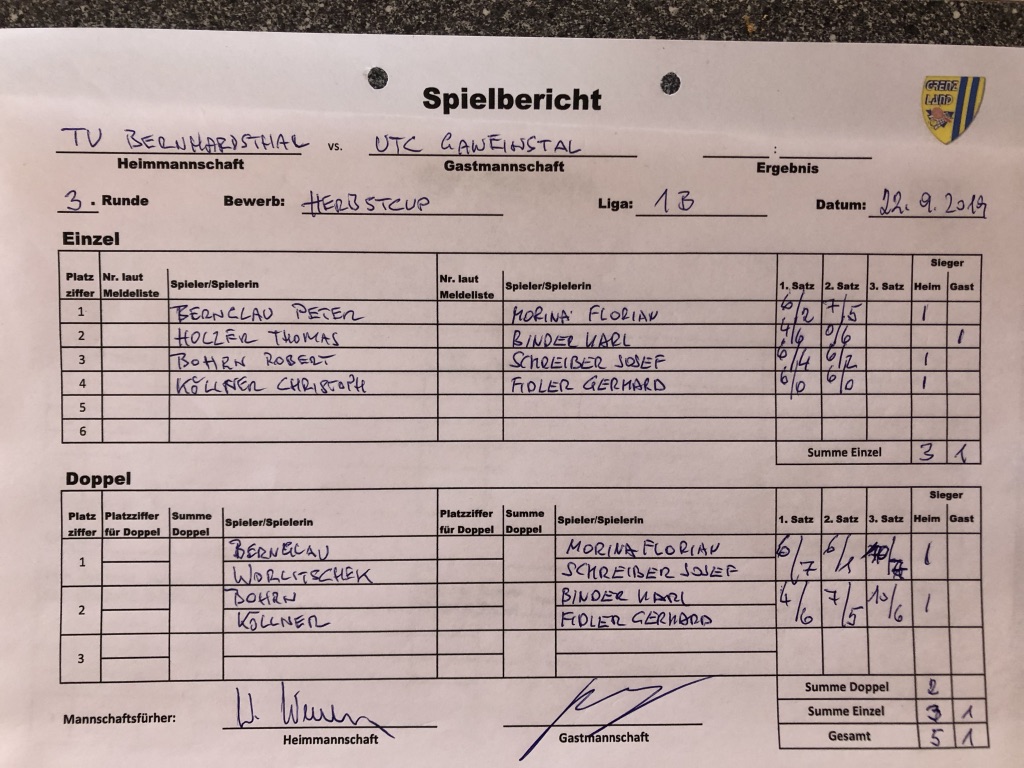 Spielbericht
GRENZ
LAND
TV BERNHARDSTHAL vs. UTC GAWEINSTAL :
Heimmannschaft Gastmannschaft Ergebnis
3. Runde Bewerb: HERBSTCUP Liga: 1B Datum: 22.9.2019
Einzel
Sieger
Platz ziffer Nr. laut Meldeliste Spieler/Spielerin Nr. laut Meldeliste Spieler/Spielerin 1. Satz 2. Satz 3. Satz Heim Gast
1 BERNCLAU PETER MORINA FLORIAN 6/2 7/5 1
2 HOLZER THOMAS BINDER KARL 4/6 0/6 1
3 BOHRN ROBERT SCHREIBER JOSEF 6/4 6/2 1
4 KÖLLNER CHRISTOPH FIDLER GERHARD 6/0 6/0 1
5
6
Summe Einzel 3 1
Doppel
Sieger
Platz ziffer Platzziffer für Doppel Summe Doppel Spieler/Spielerin Platzziffer für Doppel Summe Doppel Spieler/Spielerin 1. Satz 2. Satz 3. Satz Heim Gast
1 BERNCLAU MORINA FLORIAN 6/7 6/1 1
WORLITSCHEK SCHREIBER JOSEF
2 BOHRN BINDER KARL 4/6 7/5 10/6 1
KÖLLNER FIDLER GERHARD
3
Summe Doppel 2
Mannschaftsfürher: Summe Einzel 3 1
Heimmannschaft Gastmannschaft Gesamt 5 1